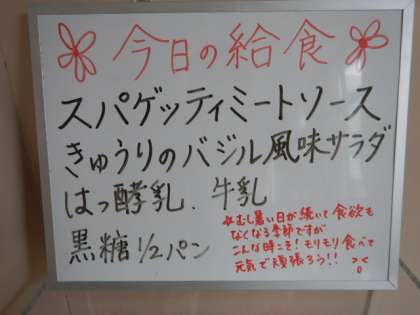 今日の給食
スパゲッティミートソース
きゅうりのバジル風味サラダ
はっ酵乳、牛乳
黒糖1/2パン
※むし暑い日が続いて食欲も
なくなる季節ですが
こんな時こそ!モリモリ食べて
元気で頑張ろう!!